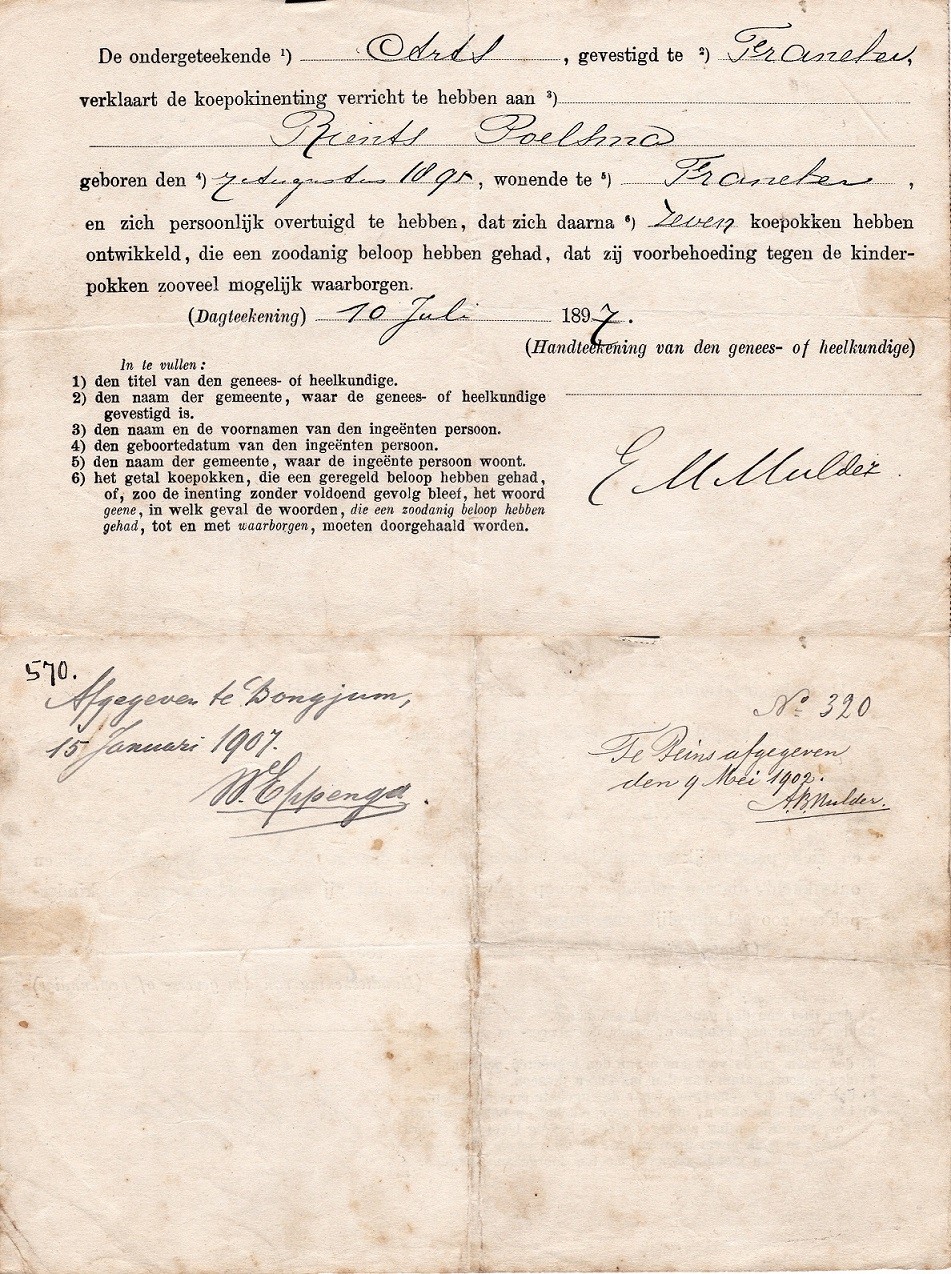 De ondergeteekende ¹) Arts, gevestigd te ²) Franeker,
verklaart de koepokinenting verricht te hebben aan ³)
Rients Poelsma
geboren den ⁴) 7 Augustus 1895, wonende te ⁵) Franeker,
en zich persoonlijk overtuigd te hebben, dat zich daarna ⁶) zeven koepokken hebben
ontwikkeld, die een zoodanig beloop hebben gehad, dat zij voorbehoeding tegen de kinder-
pokken zooveel mogelijk waarborgen.
(Dagteekening) 10 Juli 1897.
(Handteekening van den genees- of heelkundige)
In te vullen:
1) den titel van den genees- of heelkundige.
2) den naam der gemeente, waar de genees- of heelkundige
gevestigd is.
3) den naam en de voornamen van den ingeënten persoon.
4) den geboortedatum van den ingeënten persoon.
5) den naam der gemeente, waar de ingeënte persoon woont.
6) het getal koepokken, die een geregeld beloop hebben gehad,
of, zoo de inenting zonder voldoend gevolg bleef, het woord
geene, in welk geval de woorden, die een zoodanig beloop hebben
gehad, tot en met waarborgen, moeten doorgehaald worden.
E M Mulder
570.
Afgegeven te Bongjum,
15 Januari 1907.
W. Eppenga.
No 320
Te Peins afgegeven
den 9 Mei 1902.
A.B. Mulder.